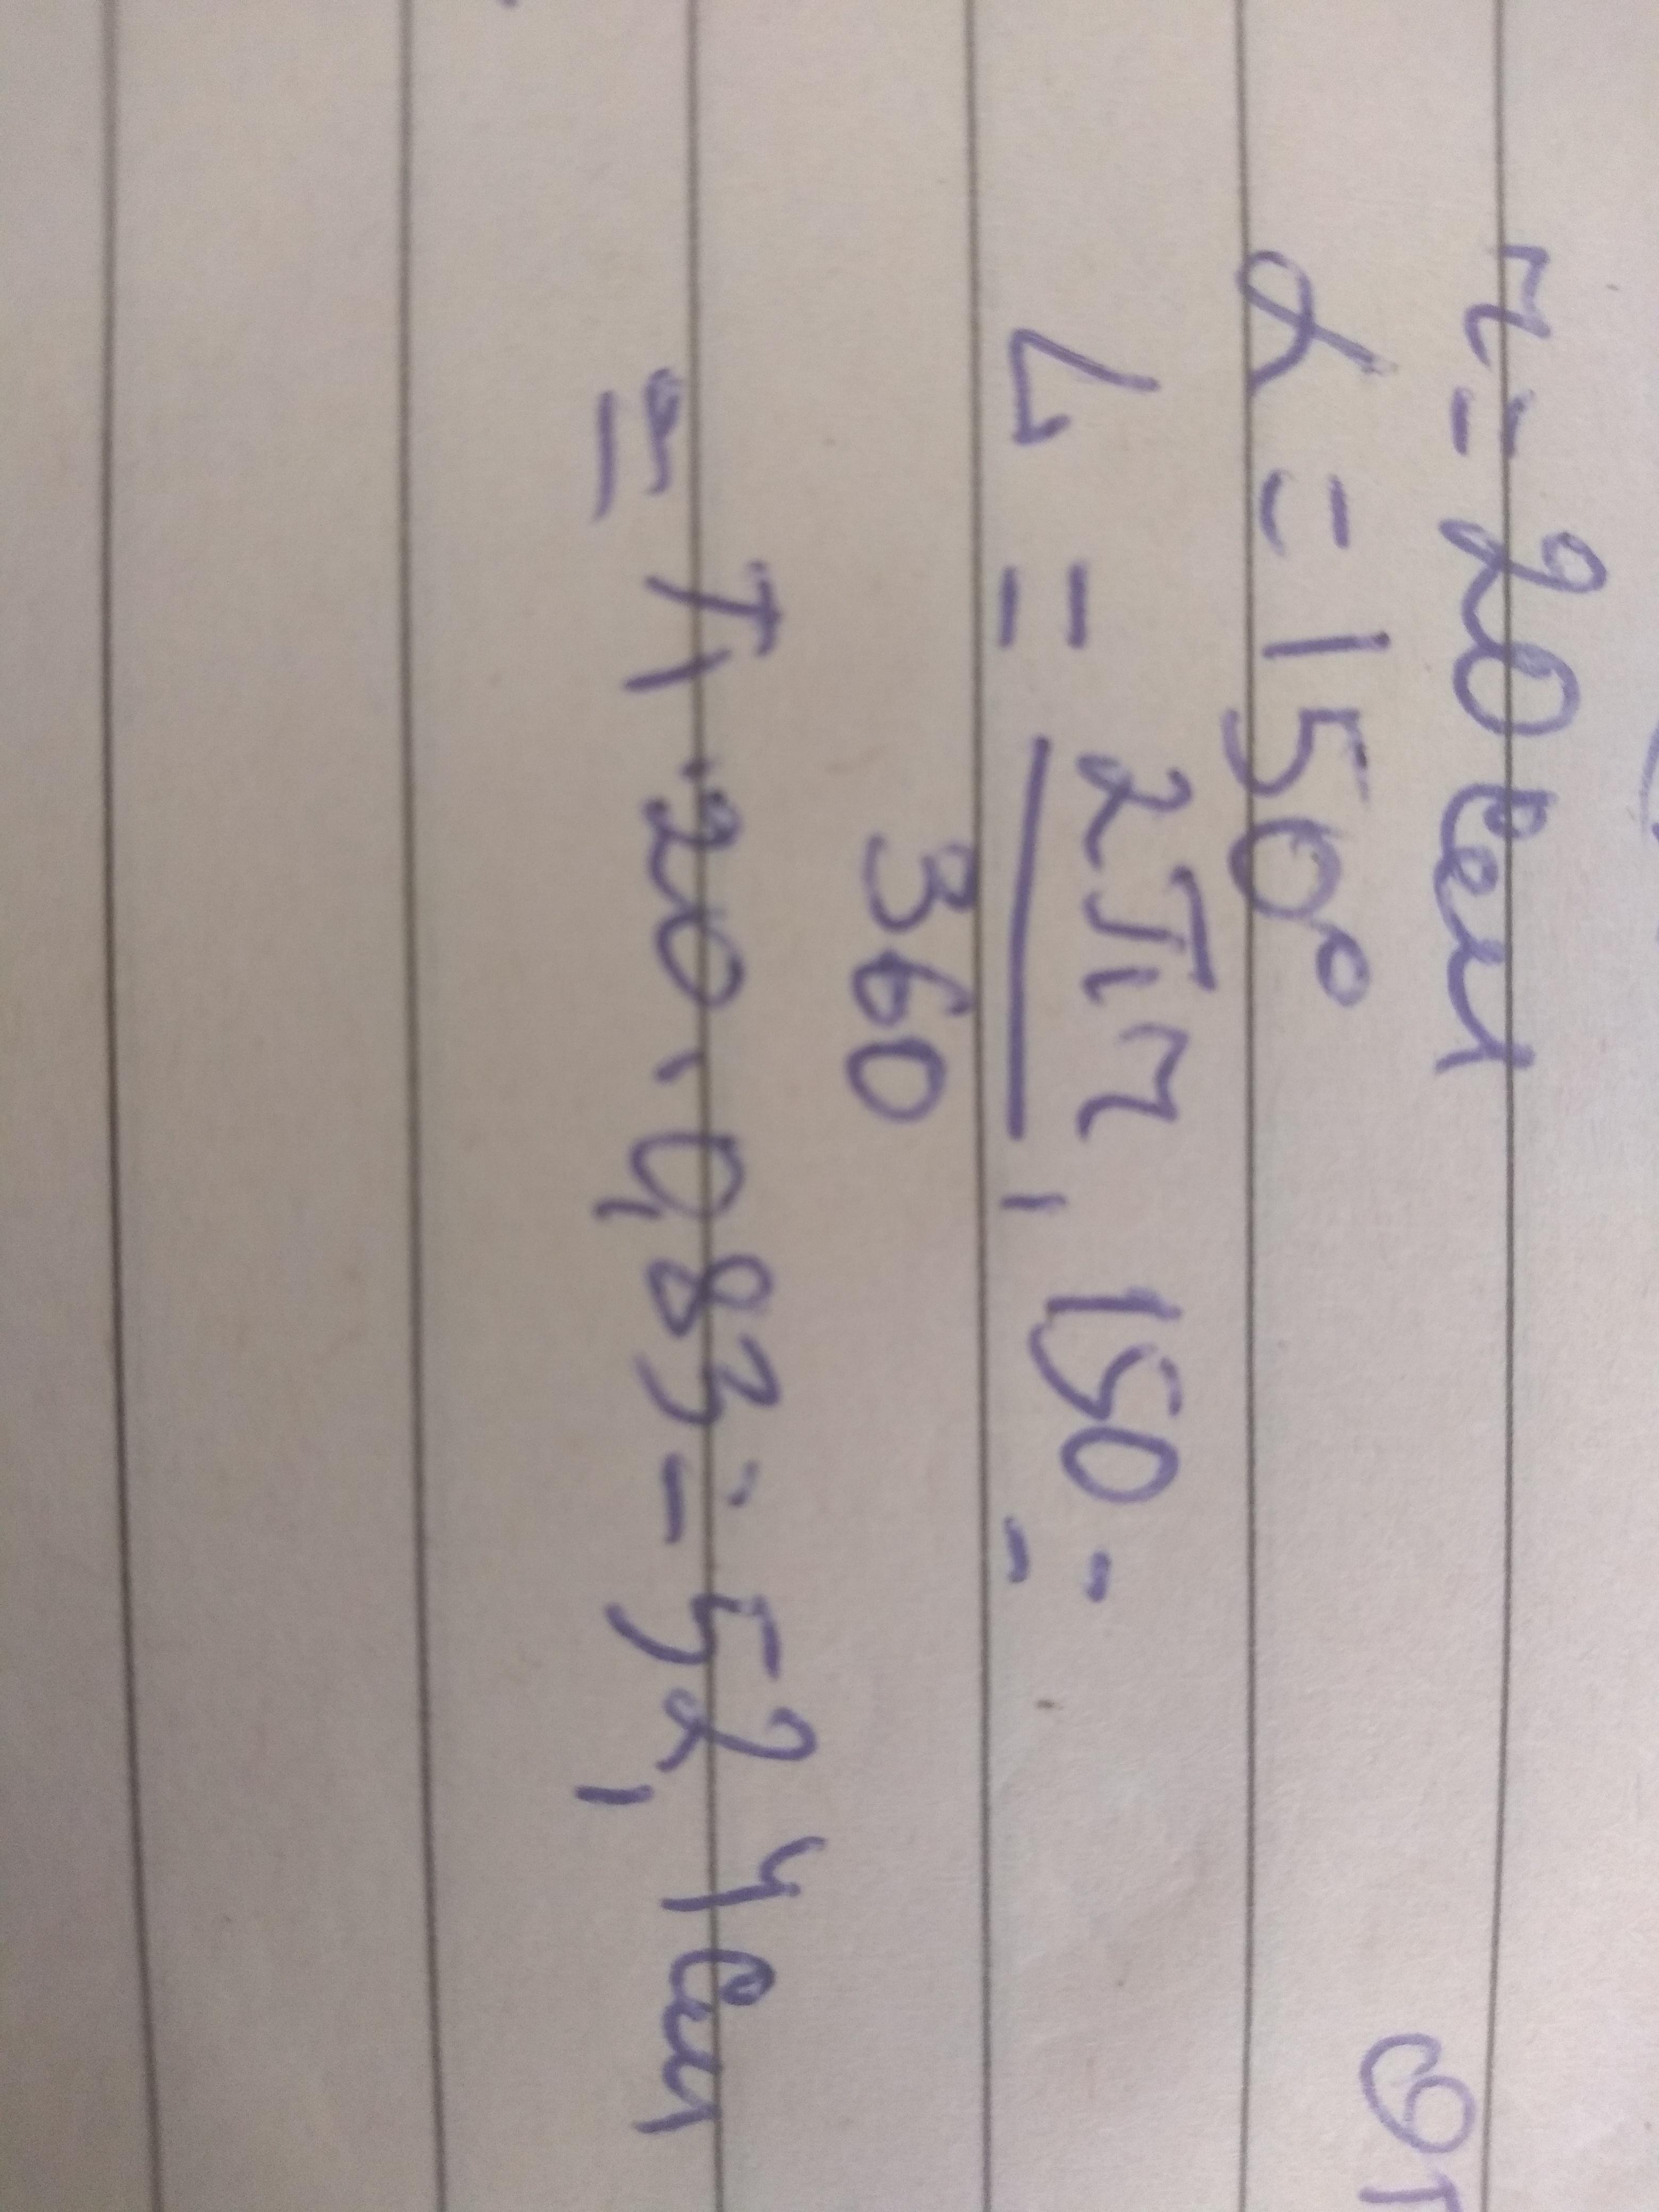 r = 20 см
α = 150°
L = 2πr/360 · 150 =
= π · 20 · 0,83 = 52,4 см